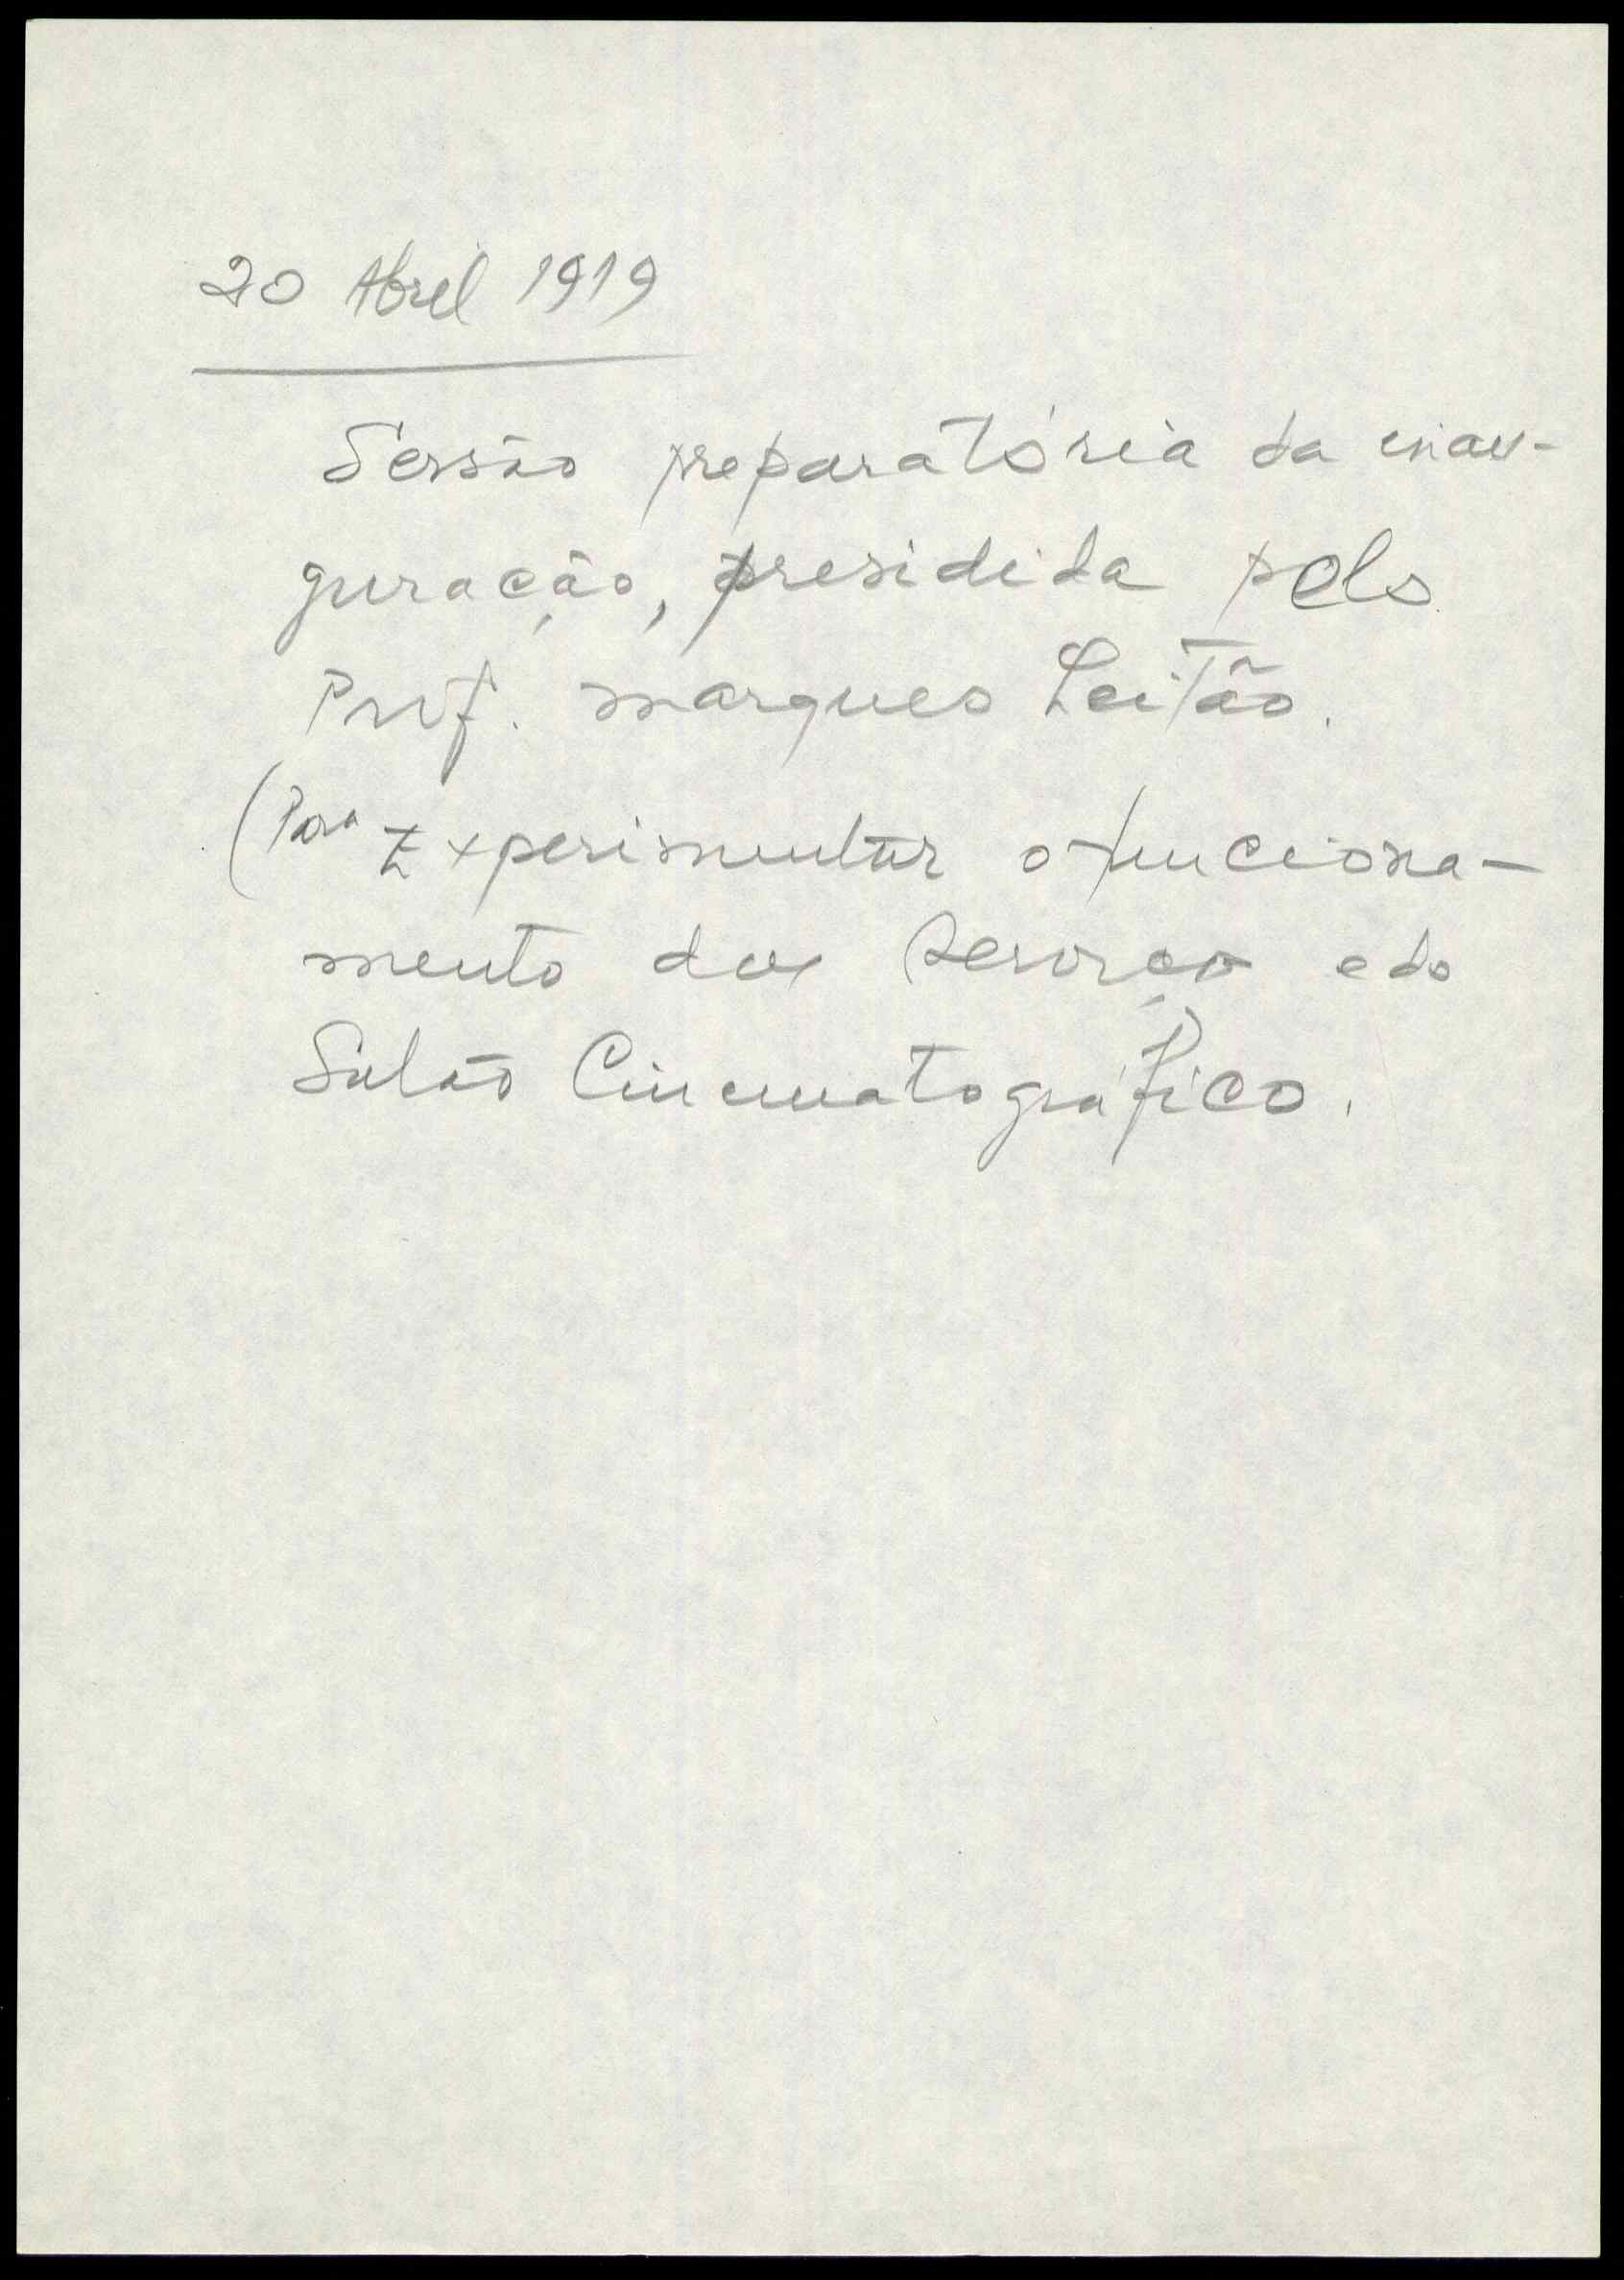 20 Abril 1919
Sessão preparatória da inau-
guração, presidida pelo
Prof. Marques Leitão.
(Para Experimentar o funciona-
mento dos e do
Salão Cinematográfico.